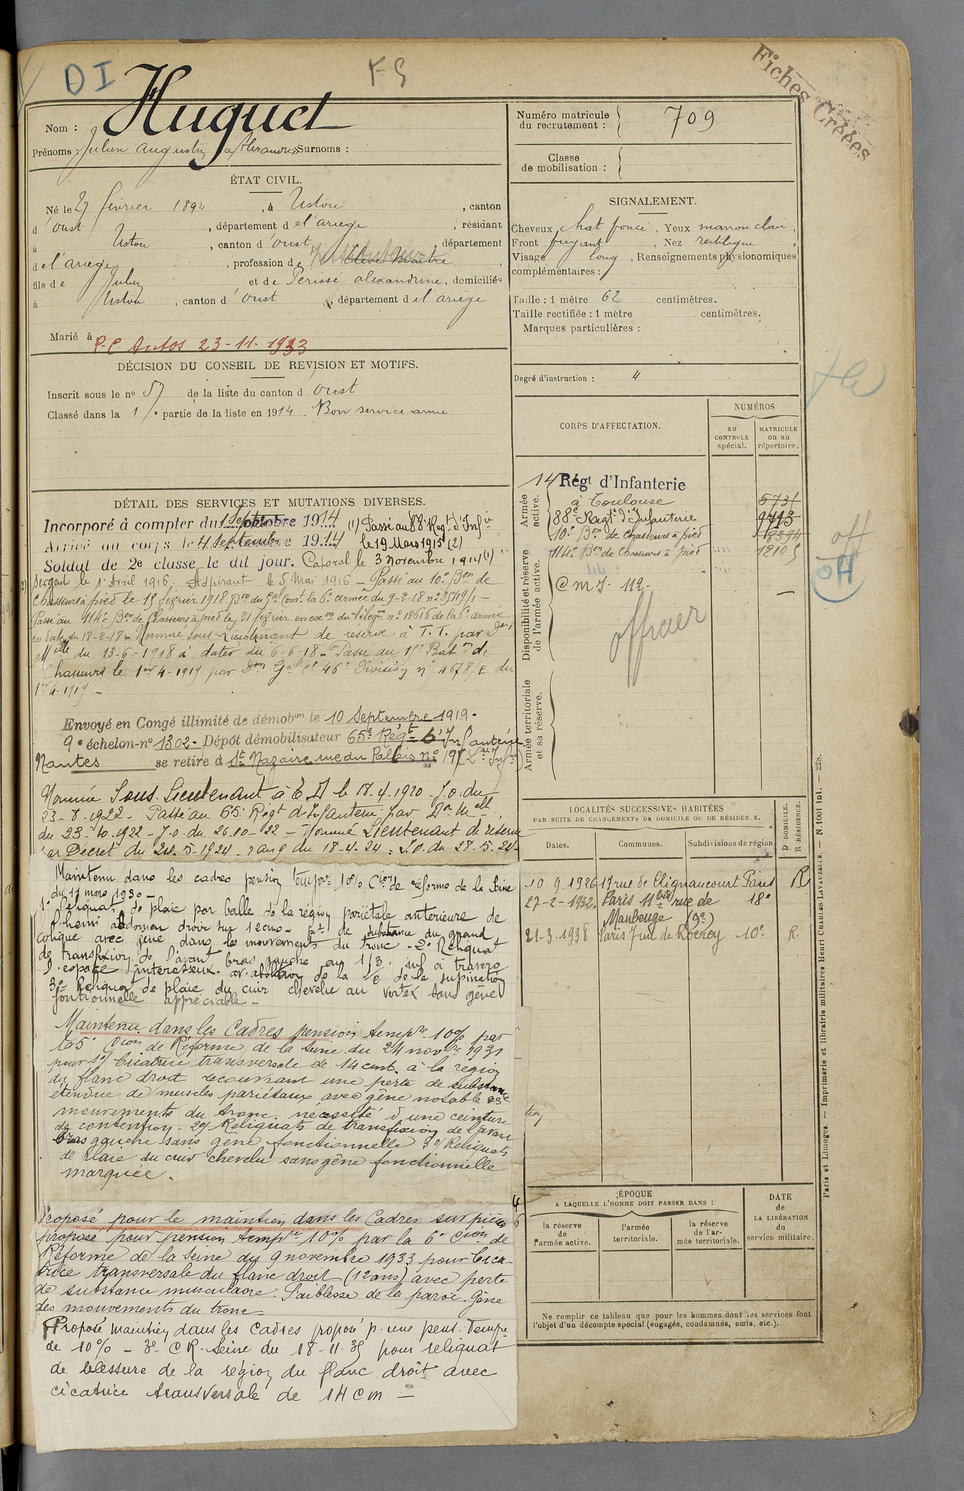 DI
FS
Fiches Créées
Huguet
Nom :
Prénoms : Julien Augustin Alexandre Surnoms :
Numéro matricule
du recrutement : 709
Classe
de mobilisation :
ÉTAT CIVIL.
Né le 27 février 1894, à Ustou, canton
d'Oust, département de l'ariège, résidant
à Ustou, canton d'Oust, département
de l'ariège, profession de
fils de Julien et de Périssé alexandrine, domiciliés
à Ustou, canton d'Oust, département de l'ariège
Marié à
P.C Autos 23-11-1933
SIGNALEMENT.
Cheveux chat foncé, Yeux marron clair,
Front fuyant, Nez rectiligne,
Visage long, Renseignements physionomiques
complémentaires :
Taille : 1 mètre 62 centimètres.
Taille rectifiée : 1 mètre centimètres.
Marques particulières :
Degré d'instruction : 4
DÉCISION DU CONSEIL DE REVISION ET MOTIFS.
Inscrit sous le nº 57 de la liste du canton d'Oust
Classé dans la 1re partie de la liste en 1914. Bon service armé
CORPS D'AFFECTATION.
NUMÉROS
AU CONTROLE spécial.
MATRICULE OU AU répertoire.
Armée active.
14 Régt d'Infanterie
à Toulouse
88e Regt d'Infanterie
10e Bon de Chasseurs à pied
114e Bon de Chasseurs à pied
Disponibilité et réserve de l'armée active.
C M I - 112 -
officier
Armée territoriale et sa réserve.
DÉTAIL DES SERVICES ET MUTATIONS DIVERSES.
Incorporé à compter du 1 Septembre 1914 (1) Passé au 88e Regt d'Infrie
Arrivé au corps le 4 Septembre 1914 le 19 Mars 1915 (2)
Soldat de 2e classe le dit jour. Caporal le 3 Novembre 1914 (1)
Sergent le 1er Avril 1916. Aspirant le 5 Mai 1916 - Passé au 10e Bon de
Chasseurs à pied le 15 février 1918 Don du Gal Comt la 6e armée du 9-2-18 nº 3519/1 -
Passé au 114e Bon de Chasseurs à pied le 21 février en exon du télégme nº 18656 de la 6e armée
en date du 18-2-18. Nommé sous-lieutenant de réserve à T.T. par Don
Melle du 13-6-1918 à dater du 6-6-18. Passé au Baton de
Chasseurs le 1er 4-1919 par Don Gal Ct 46e Division nº 4678/E du
1er 4-1919. -
Envoyé en Congé illimité de démobon le 10 Septembre 1919.
9e échelon-nº 1302. Dépôt démobilisateur 65e Régt d'Infanterie
Nantes se retire à St Nazaire rue du Palais nº 19 (Lre Infre)
Nommé Sous-Lieutenant à T.D le 18.4.1920 - J.O. du
23-8-1922 - Passé au 65e Regt d'Infanterie par Don Mlle
du 23-10-1922 - J.O. du 26.10-22 - Nommé Lieutenant de réserve
par Décret du 24.5-1924 - rang du 18-4-24 : J.O. du 28.5.24
Maintenu dans les cadres pension tempre 10% Cion de réforme de la Seine
du 17 mars 1930 -
1º Reliquat de plaie par balle de la région pariétale antérieure de
l'hemi abdomen droit sur 12 cms - pte de substance du grand
oblique avec gêne dans les mouvements du tronc - 2º Reliquat
de transfixion de l'avant bras gauche au 1/3 inf à travers
l'espace interosseux
3º Reliquat de plaie du cuir chevelu au vertex sans gêne
fonctionnelle appréciable -
Maintenu dans les Cadres pension tempre 10% par
la 5e Cion de Réforme de la Seine du 24 novbre 1931
pour 1º/ Cicatrice transversale de 14 cent. à la région
du flanc droit recouvrant une perte de substance
étendue de muscles pariétaux avec gêne notable des
mouvements du tronc. nécessité d'une ceinture
de contention - 2º/ Reliquats de transfixion de l'avant
bras gauche sans gêne fonctionnelle 3º/ Reliquats
de plaie du cuir chevelu sans gêne fonctionnelle
marquée.
Proposé pour le maintien dans les Cadres sur pièces
proposé pour pension tempre 10% par la 6e Cion de
Réforme de la Seine du 9 novembre 1933 pour Cica-
trice transversale du flanc droit (12 cms) avec perte
de substance musculaire. Faiblesse de la paroi. Gêne
des mouvements du tronc -
Proposé maintien dans les Cadres proposé p. une pens. Tempre
de 10% - 3e C R. Seine du 18-11-35 pour reliquat
de blessure de la région du flanc droit avec
cicatrice transversale de 14 cm -
LOCALITÉS SUCCESSIVES HABITÉES
PAR SUITE DE CHANGEMENTS DE DOMICILE OU DE RÉSIDENCE.
Dates. Communes. Subdivisions de région
D DOMICILE. R RÉSIDENCE.
10.9.1926 19 rue de Clignancourt Paris 18e R
27-2-1932 Paris 11 bis rue de
Maubeuge (9e)
21-3-1938 Paris 7 rue de Rocroy 10e R.
ÉPOQUE
A LAQUELLE L'HOMME DOIT PASSER DANS :
la réserve de l'armée active.
l'armée territoriale.
la réserve de l'armée territoriale.
DATE de LA LIBÉRATION du service militaire.
Ne remplir ce tableau que pour les hommes dont les services font
l'objet d'un décompte spécial (engagés, condamnés, omis, etc.).
Paris et Limoges. — Imprimerie et librairie militaires Henri CHARLES-LAVAUZELLE. — N. 1001 int. — 228.